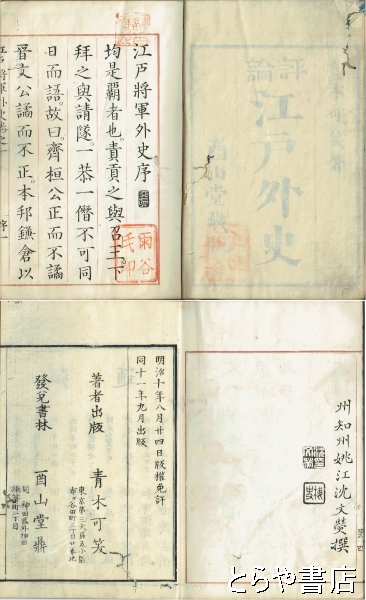 江戸將軍外史序
均是覇者也責貢之與召王下
拜之與請隧一恭一僭不可同
日而語故曰齊桓公正而不譎
晉文公譎而不正本邦鎌倉以
序一
雨谷
氏印
評論
江戸外史
酉山堂
州知州姚江沈文熒撰
明治十年八月廿四日版權免許
同十一年九月出版
著者出版
青木可笑
東京第三大區五小區
發兌書林
酉山堂
とらや書店